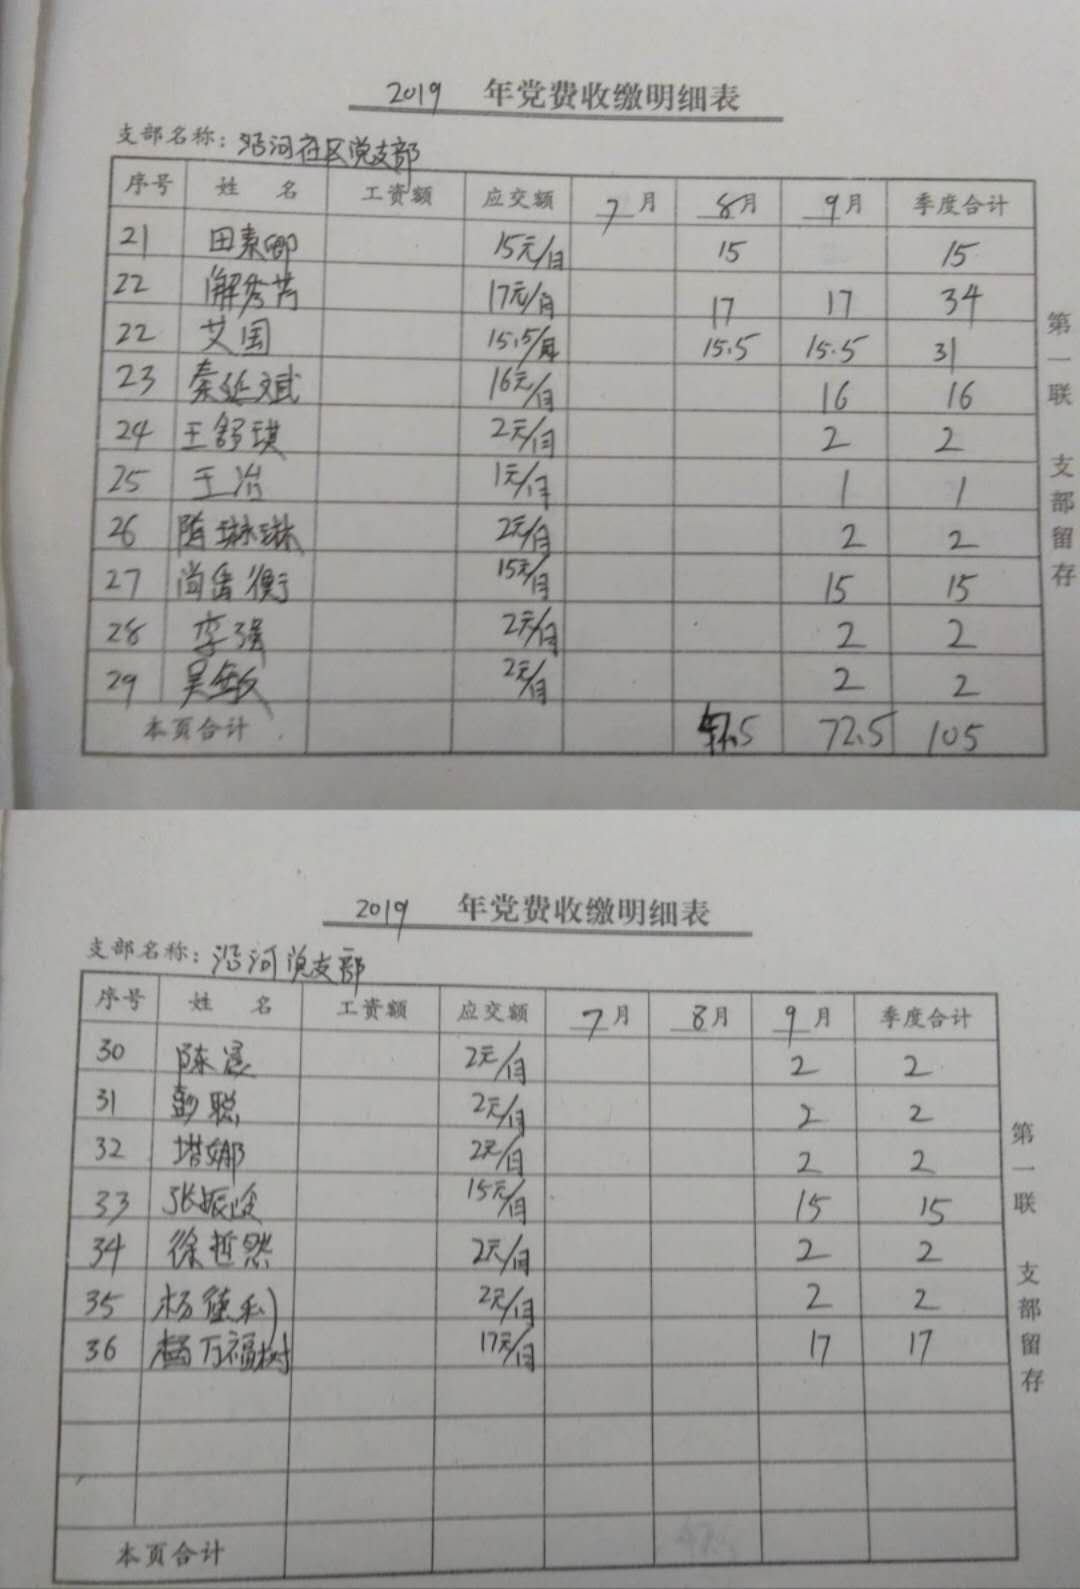 2019 年党费收缴明细表
支部名称：沿河社区党支部
序号 姓 名 工资额 应交额 7月 8月 9月 季度合计
21 田素卿 15元/月 15 15
22 解秀芳 17元/月 17 17 34
22 艾国 15.5/月 15.5 15.5 31
23 秦延斌 16元/月 16 16
24 王舒琪 2元/月 2 2
25 王冶 1元/月 1 1
26 隋琳琳 2元/月 2 2
27 尚香衡 15元/月 15 15
28 李强 2元/月 2 2
29 吴敏 2元/月 2 2
本页合计 47.5 72.5 105
第一联 支部留存
2019 年党费收缴明细表
支部名称：沿河党支部
序号 姓 名 工资额 应交额 7月 8月 9月 季度合计
30 陈 2元/月 2 2
31 彭聪 2元/月 2 2
32 塔娜 2元/月 2 2
33 张振 15元/月 15 15
34 徐哲然 2元/月 2 2
35 杨德利 2元/月 2 2
36 万福树 17元/月 17 17
本页合计
第一联 支部留存